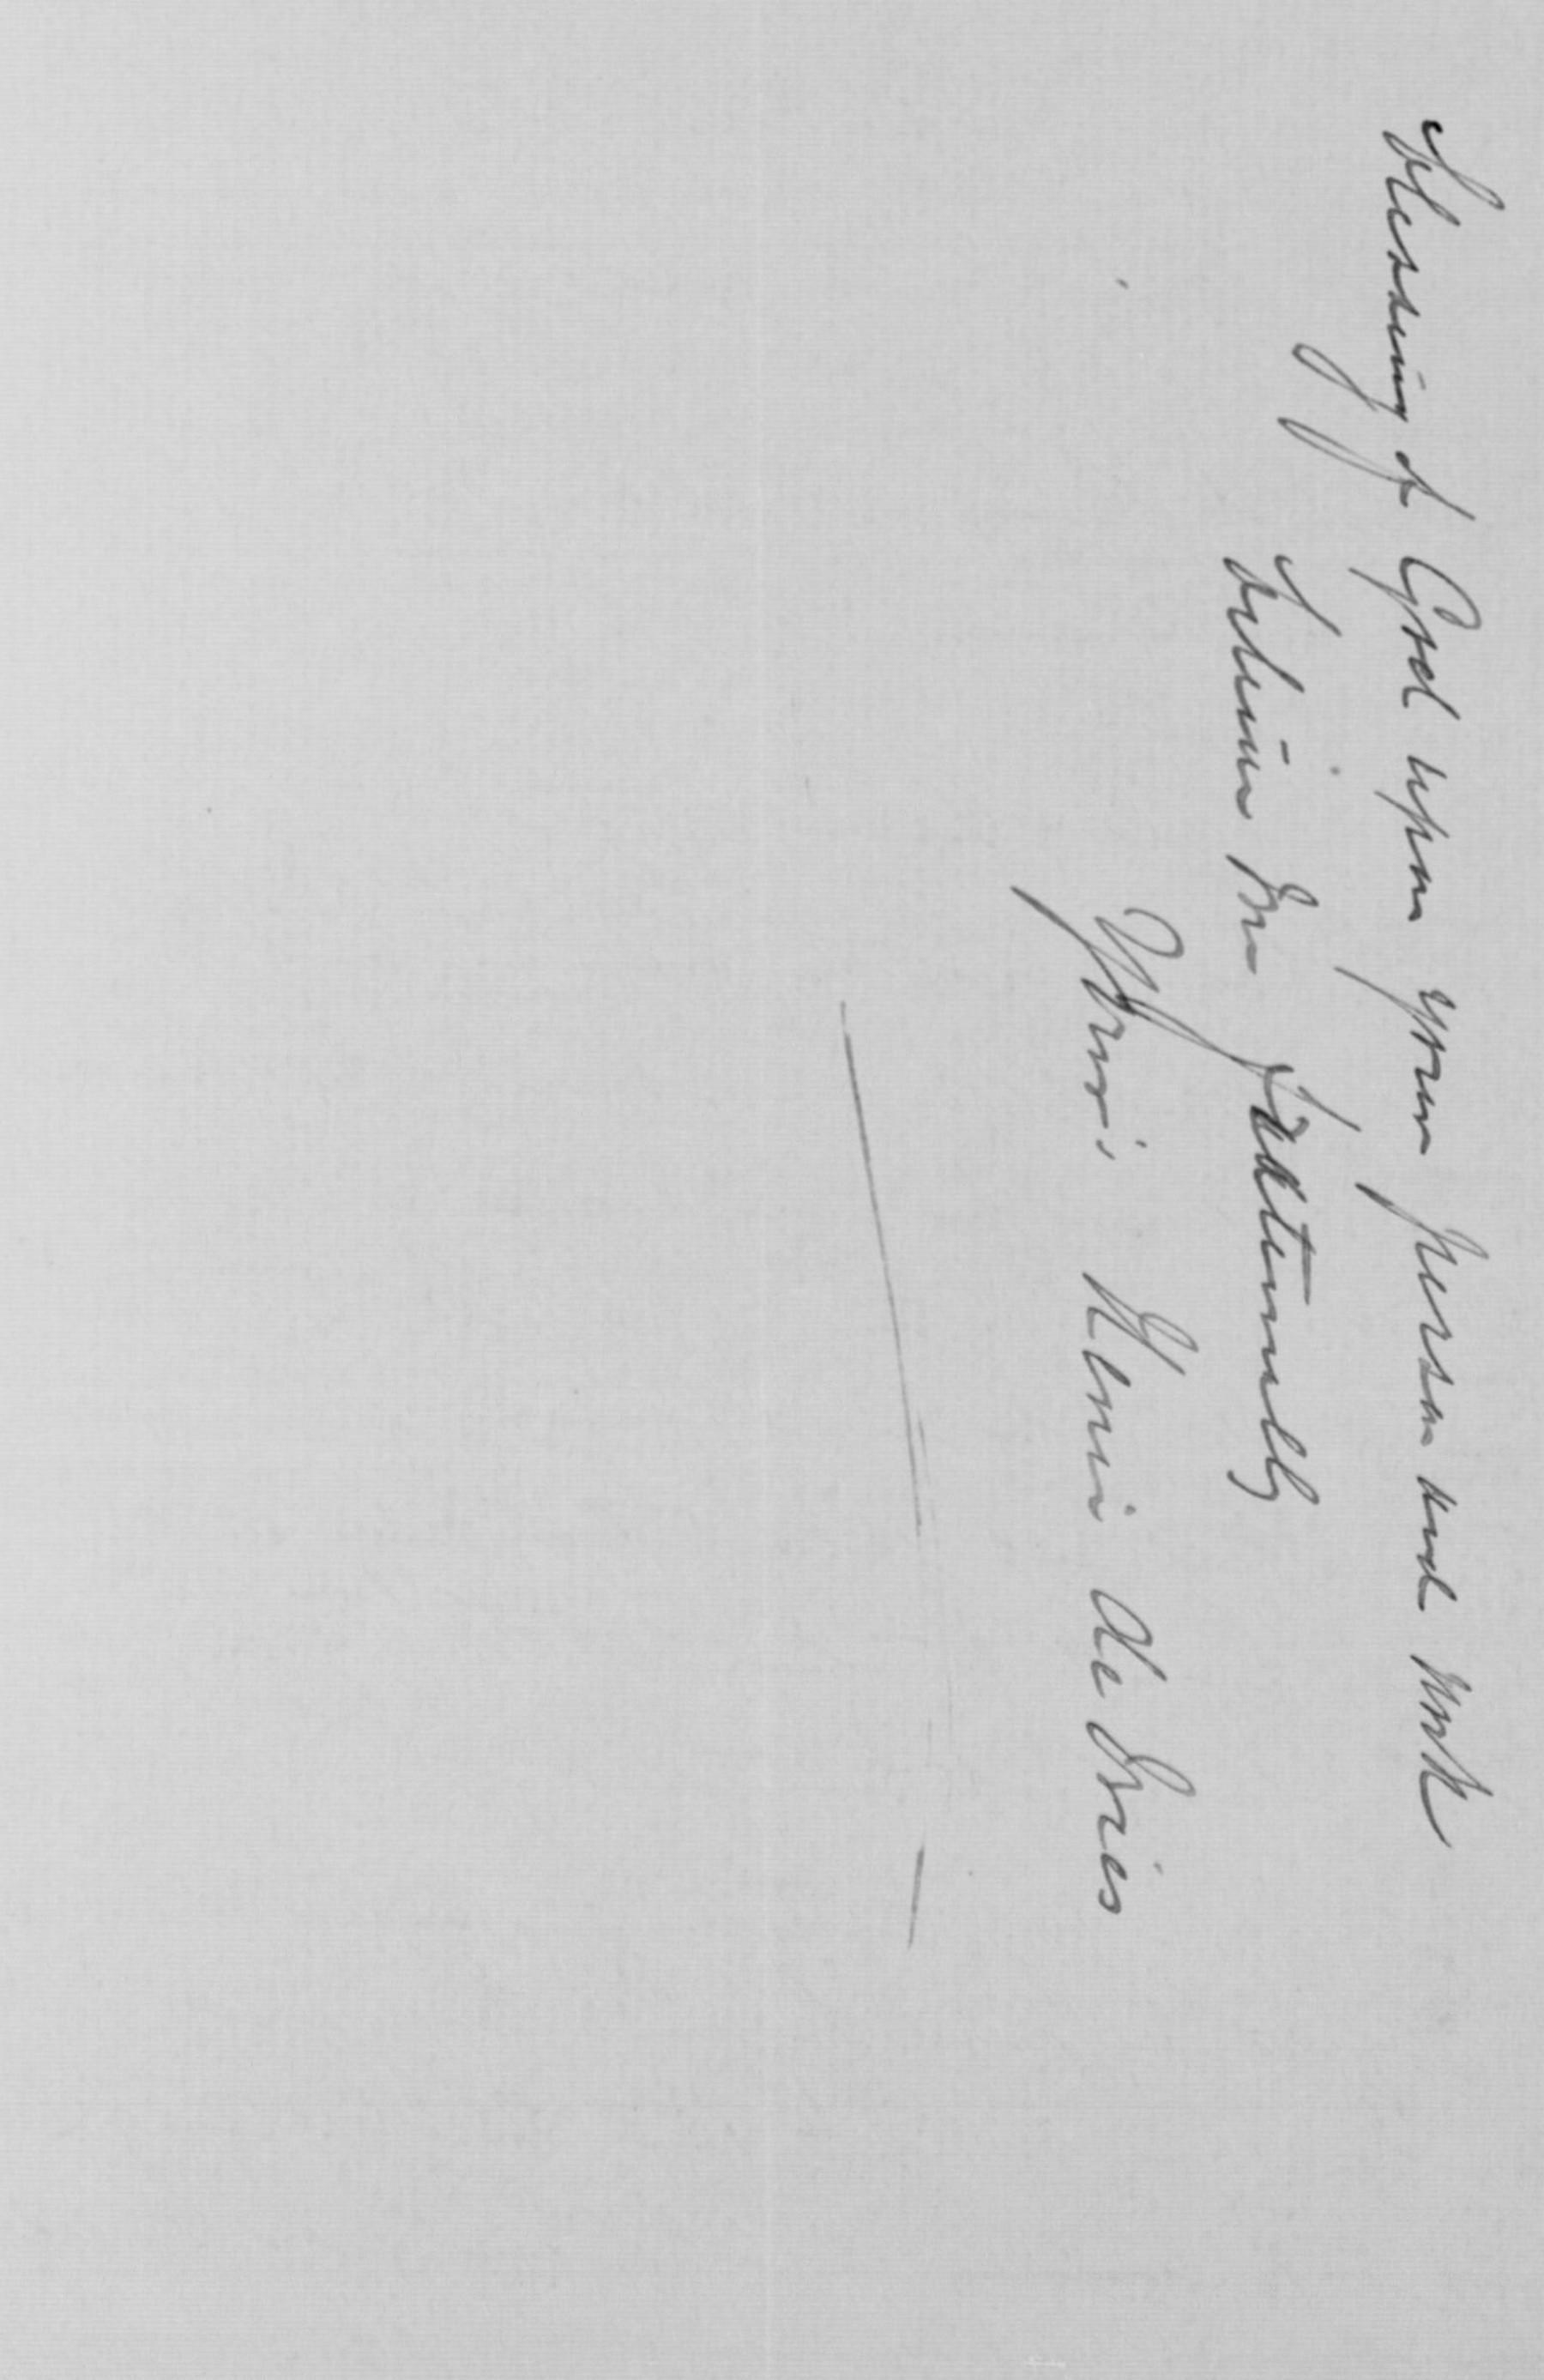 blessing of God upon your person and work
believe me fraternally
Yours, Henri de Vries